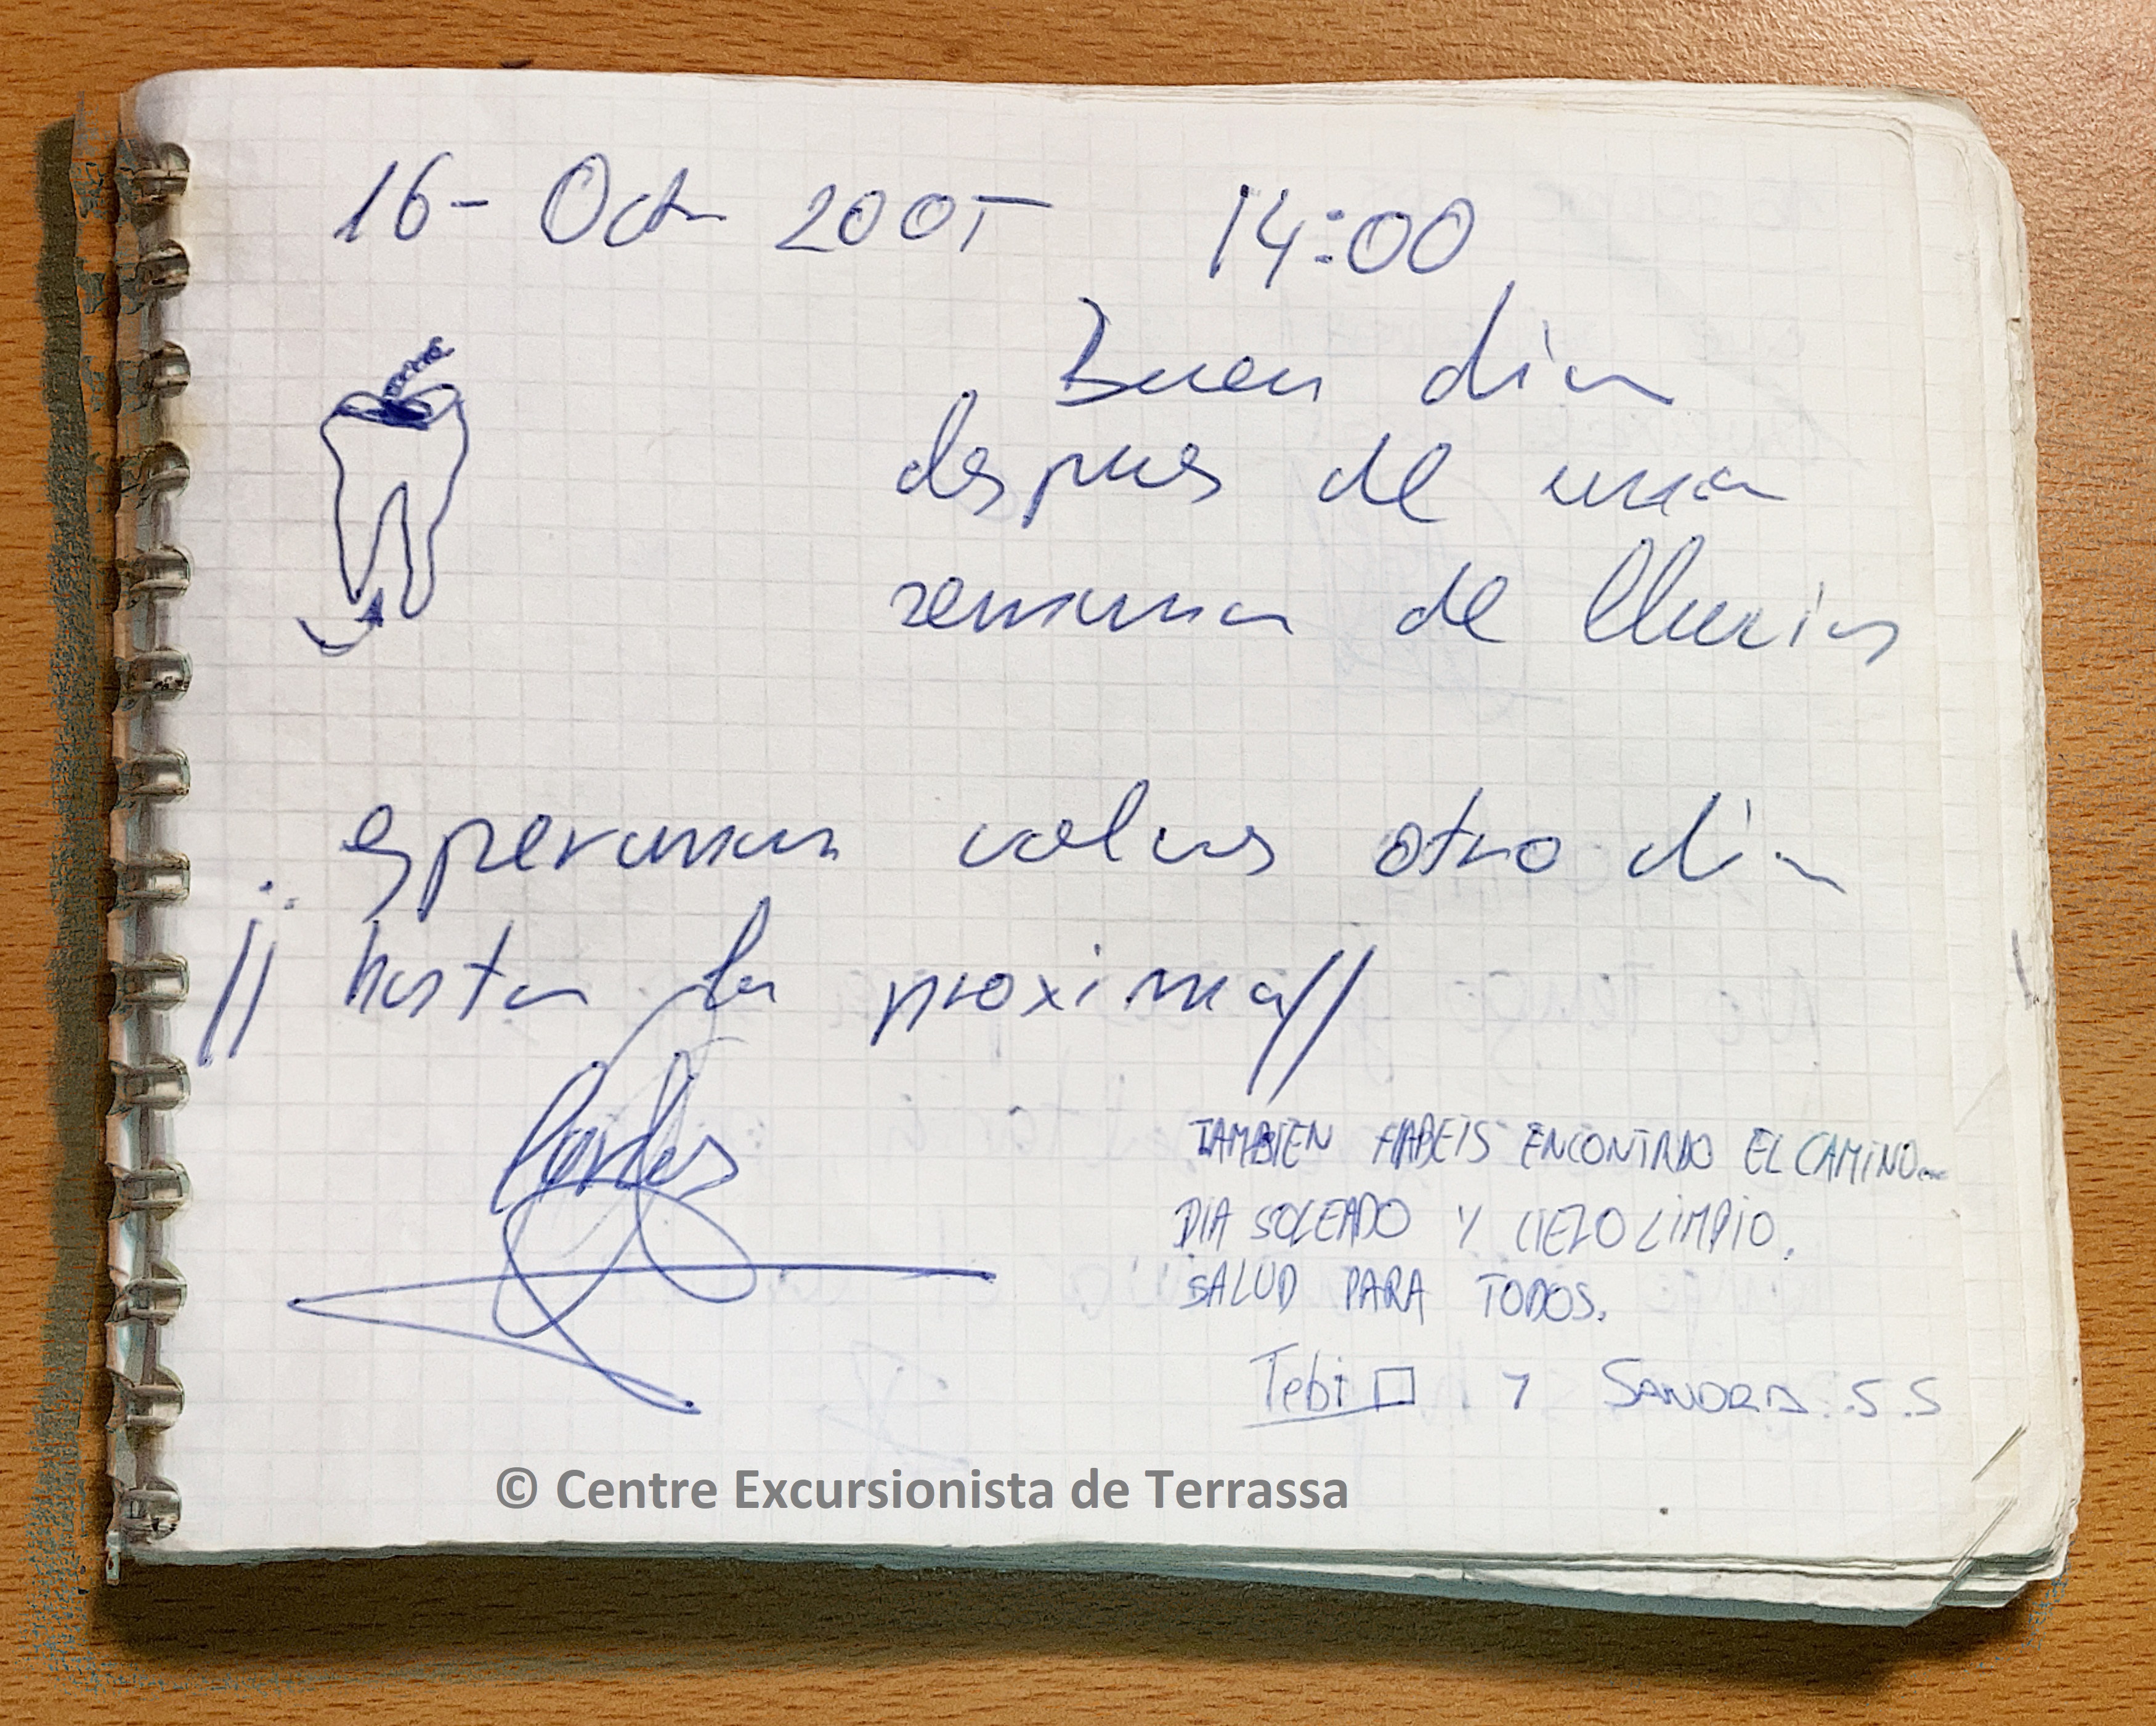 16- Oct 2005 14:00
Buen día
despues de una
semana de lluvias
esperamos otro día
¡¡ hasta la proxima!!
Carlos
TAMBIEN HABEIS ENCONTRADO EL CAMINO...
DIA SOLEADO Y CIELO LIMPIO.
SALUD PARA TODOS.
Tebi y SANDRA S.S
© Centre Excursionista de Terrassa